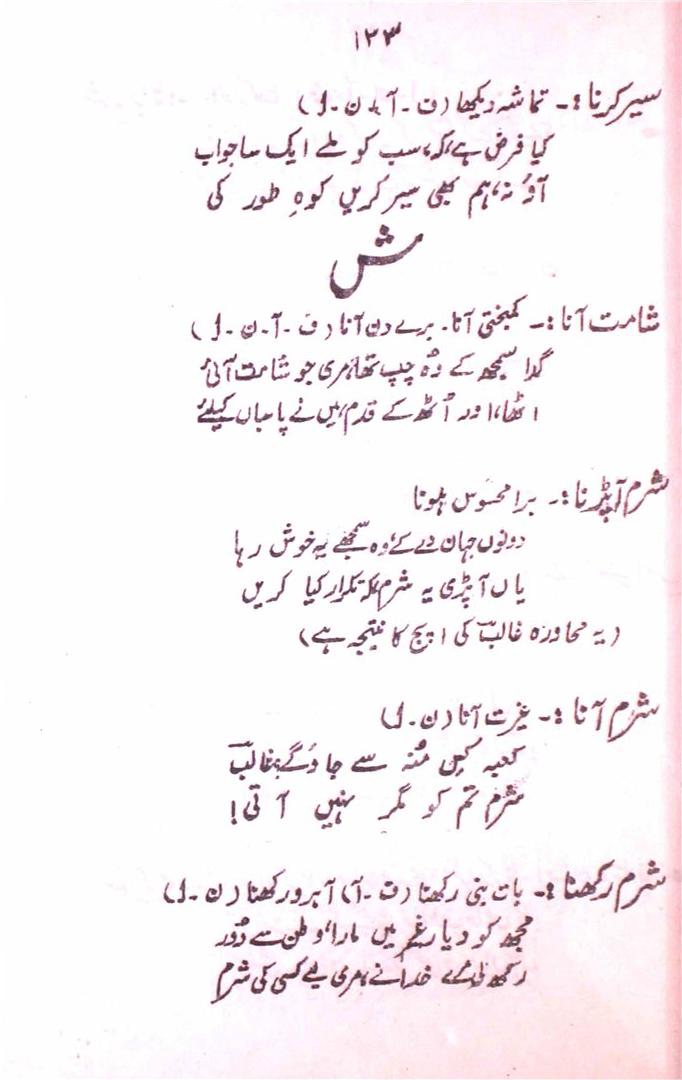 ۱۳۳
سیر کرنا :- تماشہ دیکھا (ف - آ ، ن - ل)
کیا فرض ہے، کہ، سب کو ملے ایک سا جواب
آؤ نہ، ہم بھی سیر کریں کوہِ طور کی
ش
شامت آنا :- کمبختی آنا۔ برے دن آنا (ف - آ - ن - ل)
گدا سمجھ کے وہ چپ تھا، مری جو شامت آئی
اٹھا، اور اُٹھ کے قدم، میں نے پاسباں کیلئے
شرم آپڑنا :- برا محسوس ہونا
دونوں جہان دے کے، وہ سمجھے یہ خوش رہا
یاں آپڑی یہ شرم، کہ تکرار کیا کریں
(یہ محاورہ غالبؔ کی اپچ کا نتیجہ ہے)
شرم آنا :- غیرت آنا (ن - ل)
کعبہ کس منہ سے جاؤگے، غالبؔ
شرم تم کو مگر نہیں آتی!
شرم رکھنا :- بات بنی رکھنا (ف - آ) آبرو رکھنا (ن - ل)
مجھ کو دیارِ غیر میں مارا، وطن سے دُور
رکھ لی مرے خدا نے، مری بے کسی کی شرم